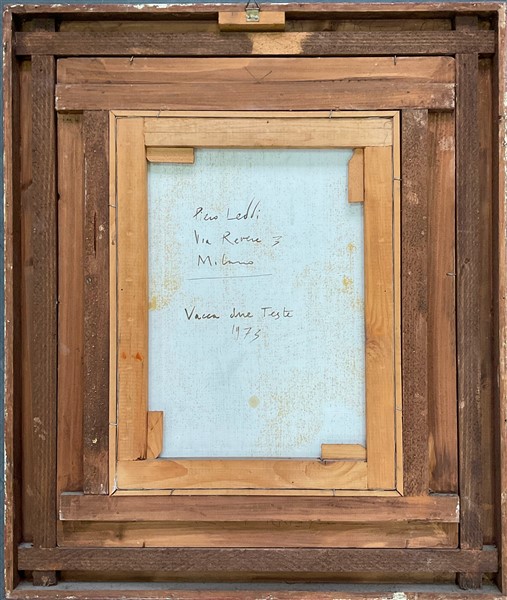 Piero Leddi
Via Revere 3
Milano
Vacca due Teste
1973